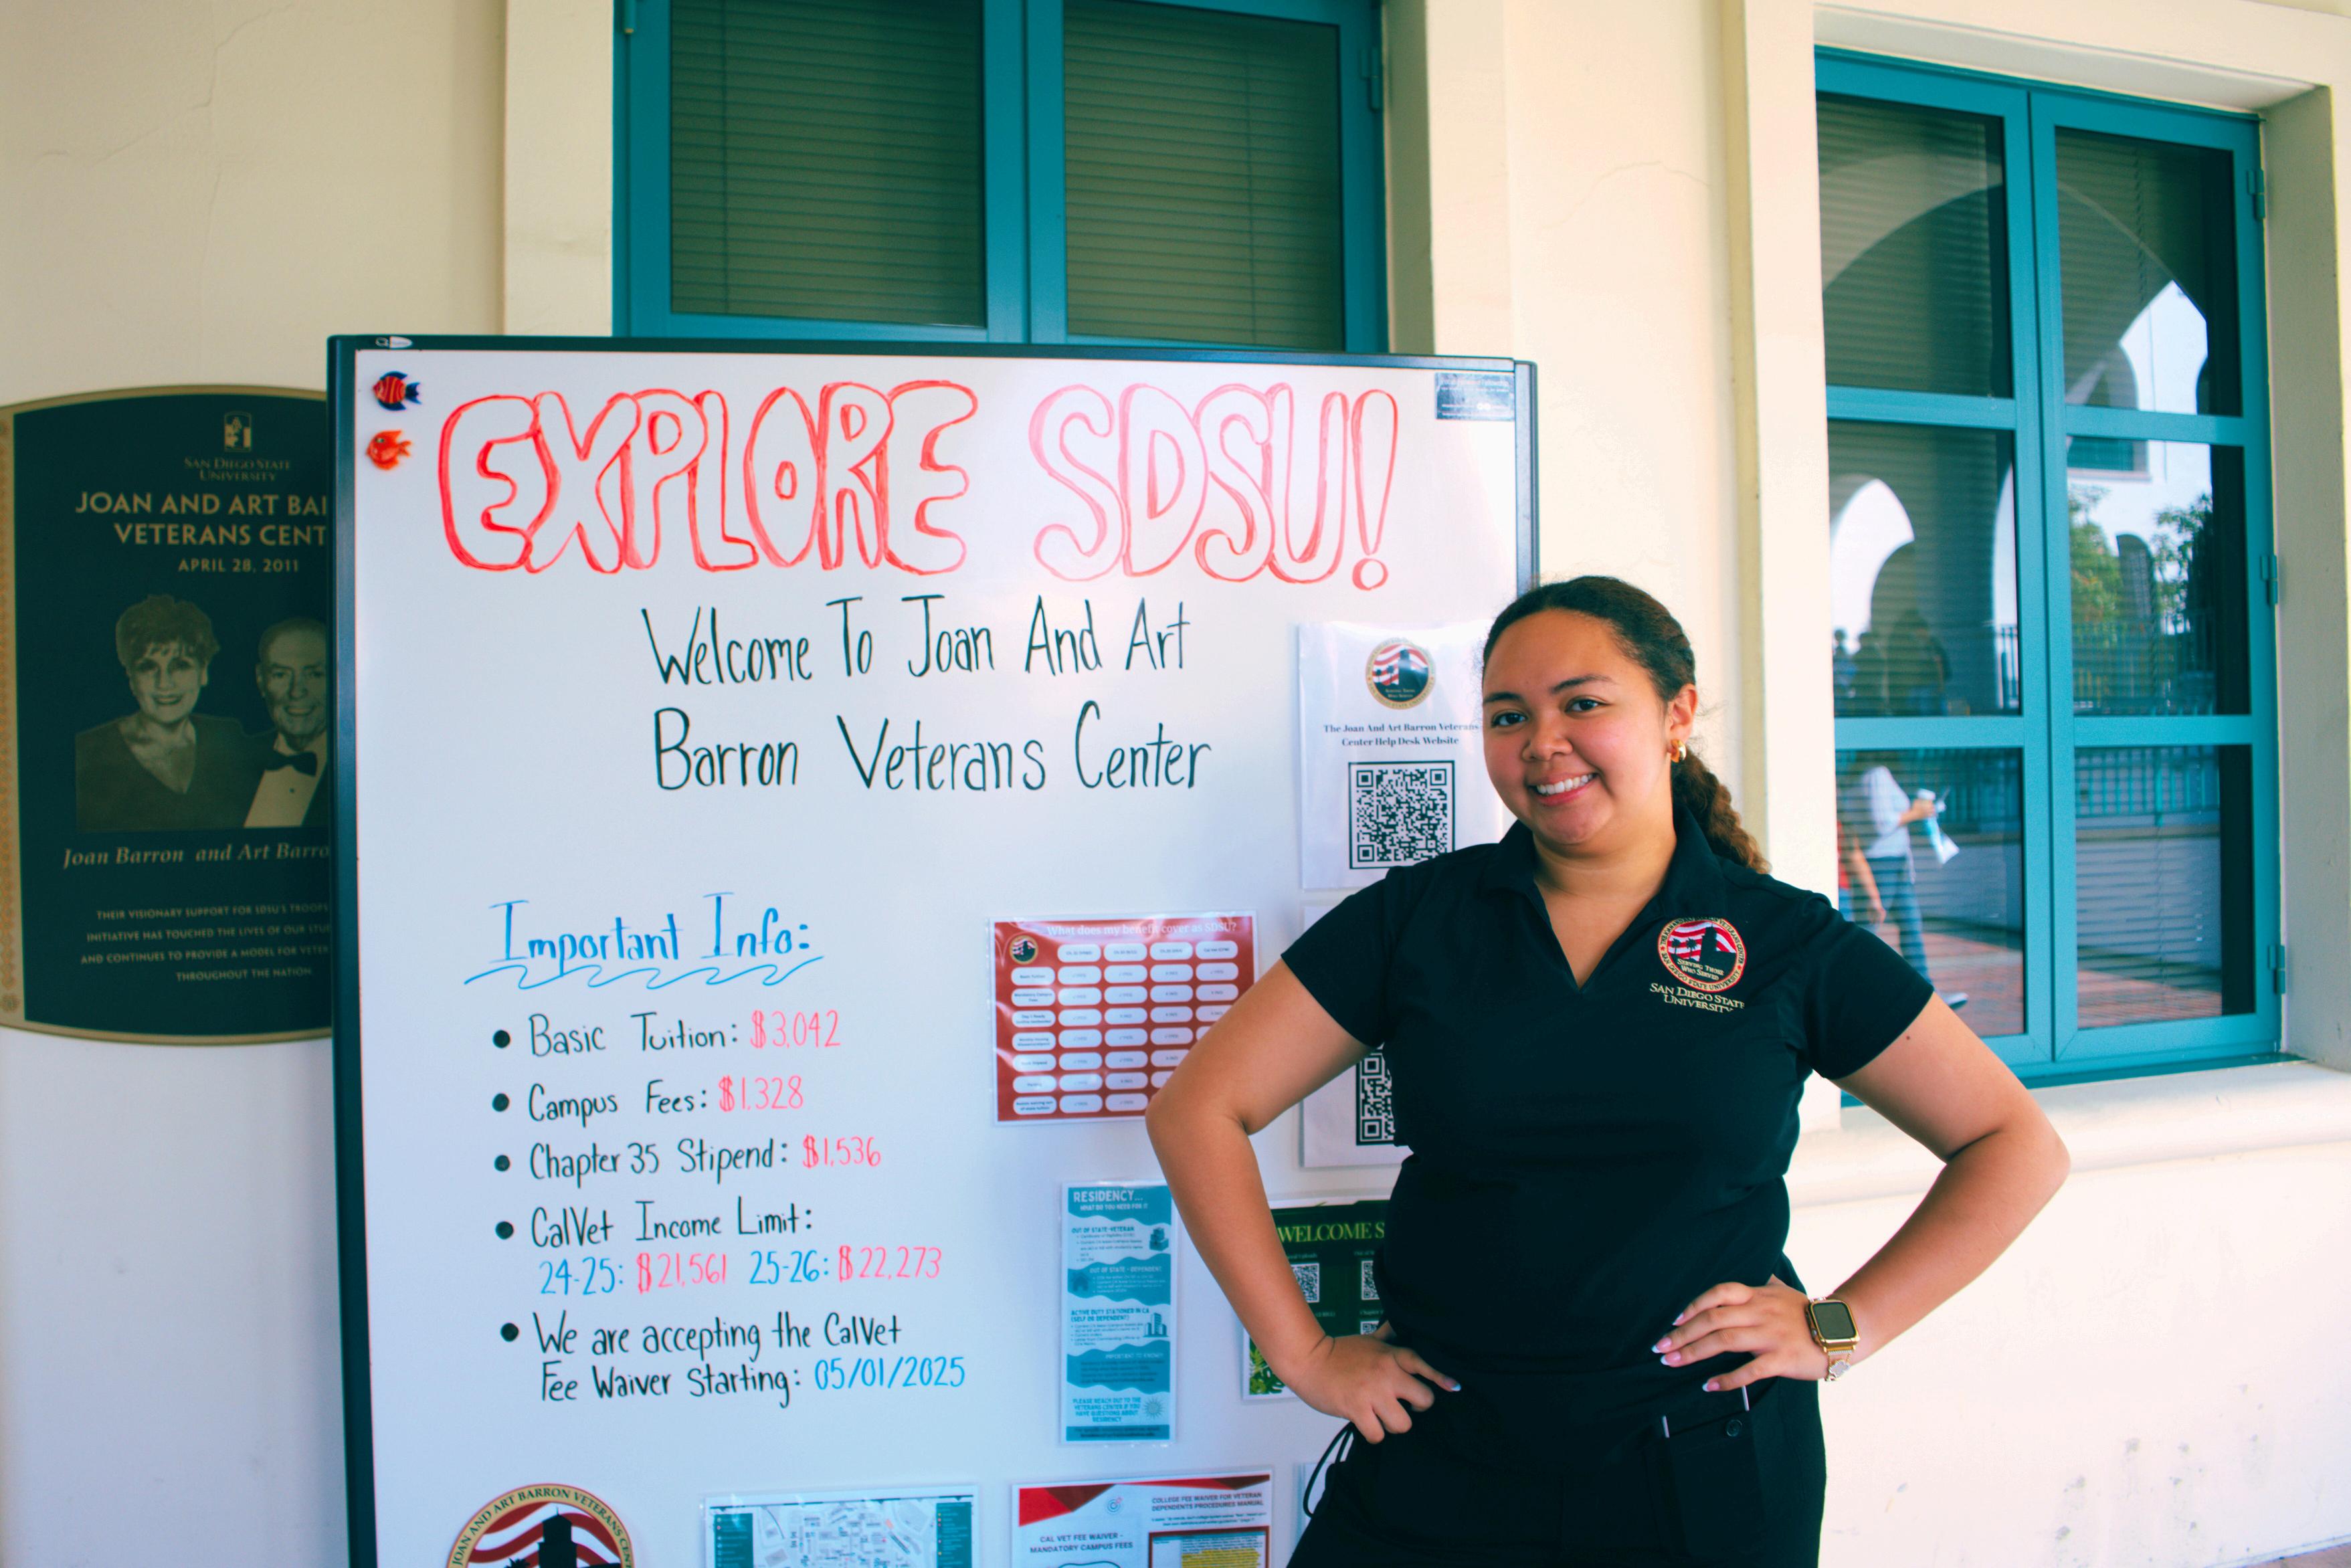 EXPLORE SDSU!
Welcome To Joan And Art
Barron Veterans Center
Important Info:
• Basic Tuition: $3,042
• Campus Fees: $1,328
• Chapter 35 Stipend: $1,536
• CalVet Income Limit:
24-25: $21,561 25-26: $22,273
• We are accepting the CalVet
Fee Waiver Starting: 05/01/2025
SAN DIEGO STATE
UNIVERSITY
JOAN AND ART
VETERANS
APRIL 28, 2011
Joan Barron and Art
THEIR VISIONARY SUPPORT FOR SDSU'S TROOPS
INITIATIVE HAS TOUCHED THE LIVES OF OUR
AND CONTINUES TO PROVIDE A MODEL FOR
THROUGHOUT THE NATION
The Joan And Art Barron Veterans
Center Help Desk Website
What does my benefit cover as SDSU?
RESIDENCY...
WHAT DO YOU NEED FOR IT
OUT OF STATE - VETERAN
OUT OF STATE - DEPENDENT
ACTIVE DUTY STATIONED IN CA
(SELF OR DEPENDENT)
PLEASE REACH OUT TO THE
VETERANS CENTER IF YOU
HAVE QUESTIONS ABOUT
RESIDENCY
WELCOME
SERVING THOSE
WHO SERVE
SAN DIEGO STATE
UNIVERSITY
JOAN AND ART BARRON VETERANS
CAL VET FEE WAIVER -
MANDATORY CAMPUS FEES
COLLEGE FEE WAIVER FOR VETERAN
DEPENDENTS PROCEDURES MANUAL